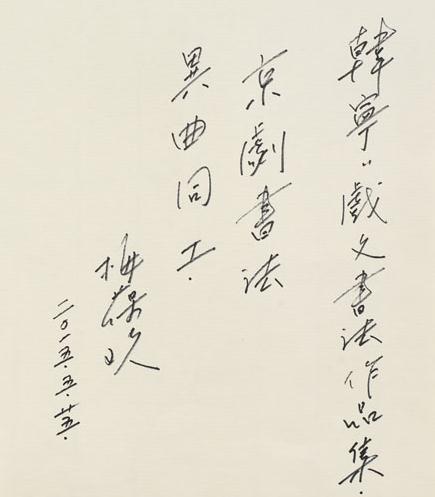 韓寧"戲文書法作品集.
京劇書法
異曲同工.
梅葆玖
二〇一五.五.廿五.